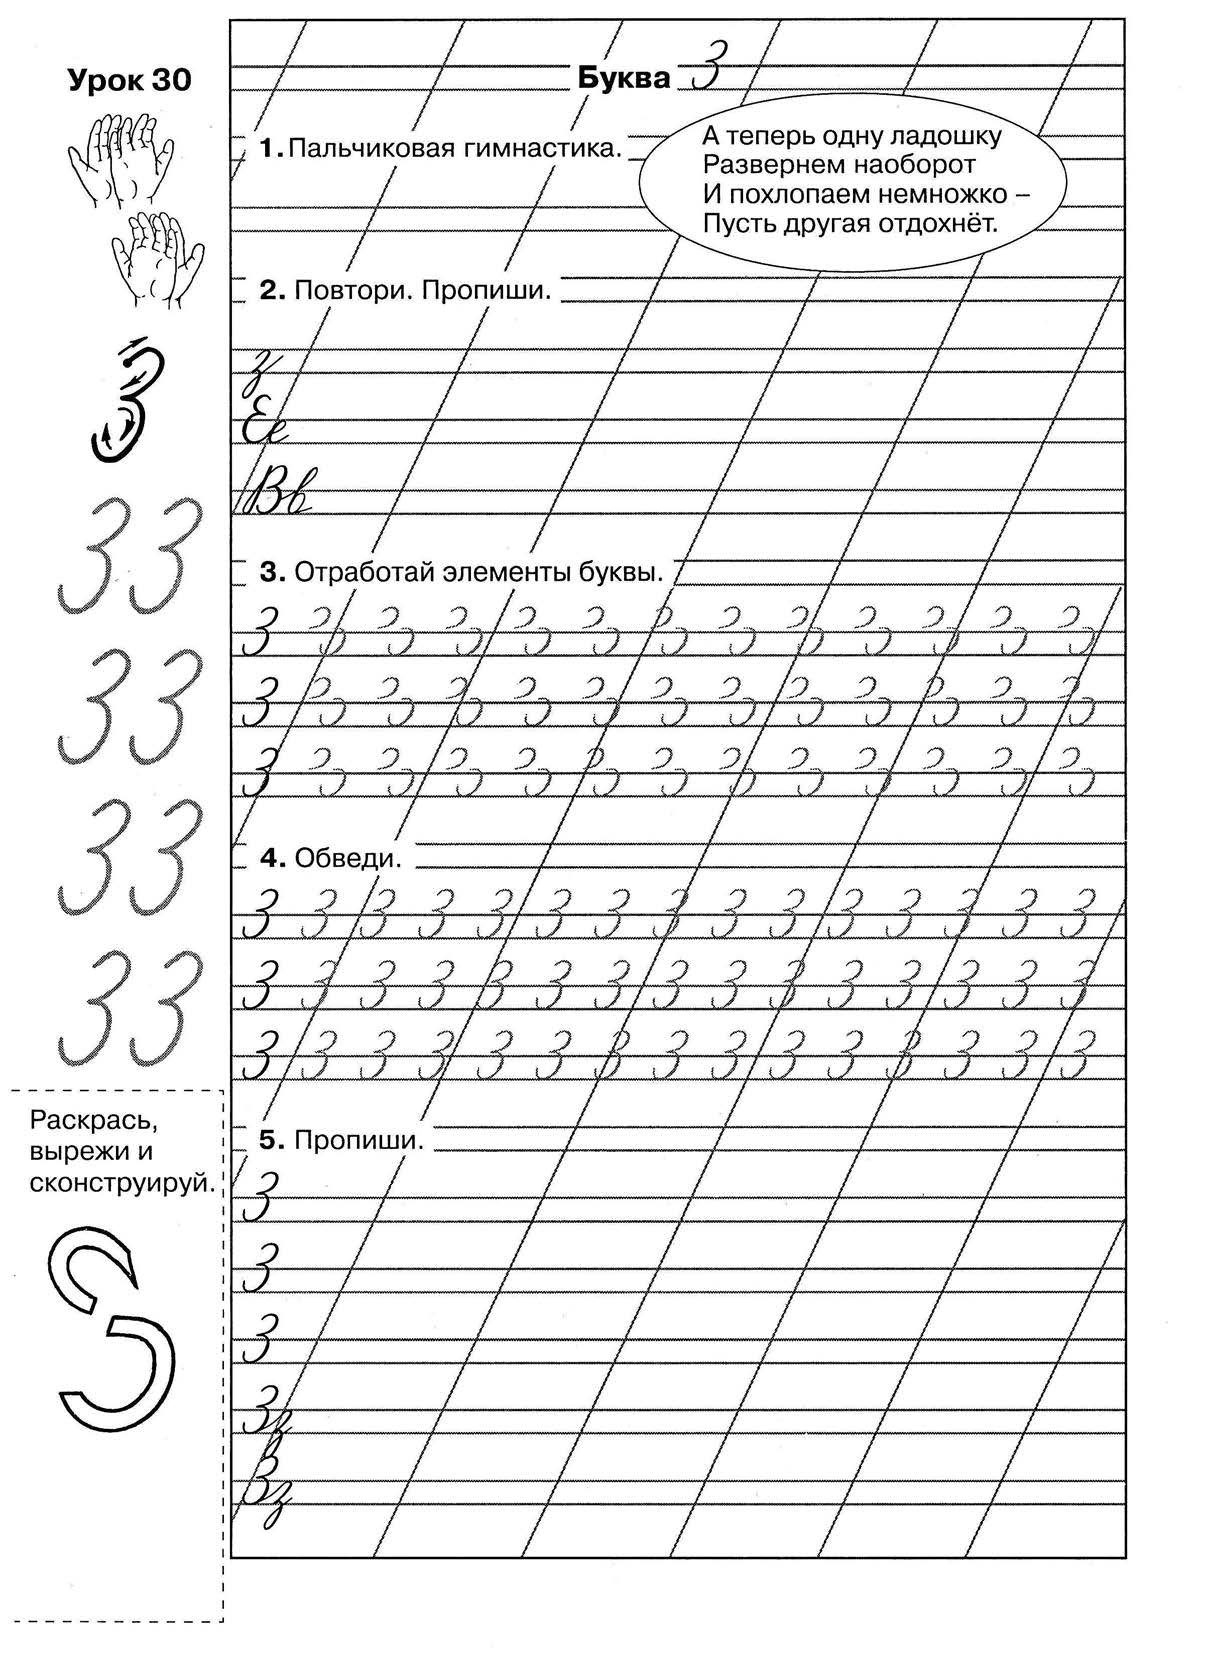 Урок 30
Буква З
1. Пальчиковая гимнастика.
А теперь одну ладошку
Развернем наоборот
И похлопаем немножко –
Пусть другая отдохнёт.
2. Повтори. Пропиши.
з
Ее
Вв
З З
З З
З З
З З
3. Отработай элементы буквы.
З З З З З З З З З З З З З
З З З З З З З З З З З З З
З З З З З З З З З З З З З
4. Обведи.
З З З З З З З З З З З З З З З
З З З З З З З З З З З З З З З
З З З З З З З З З З З З З З З
5. Пропиши.
З
З
З
Зз
Зз
Раскрась,
вырежи и
сконструируй.